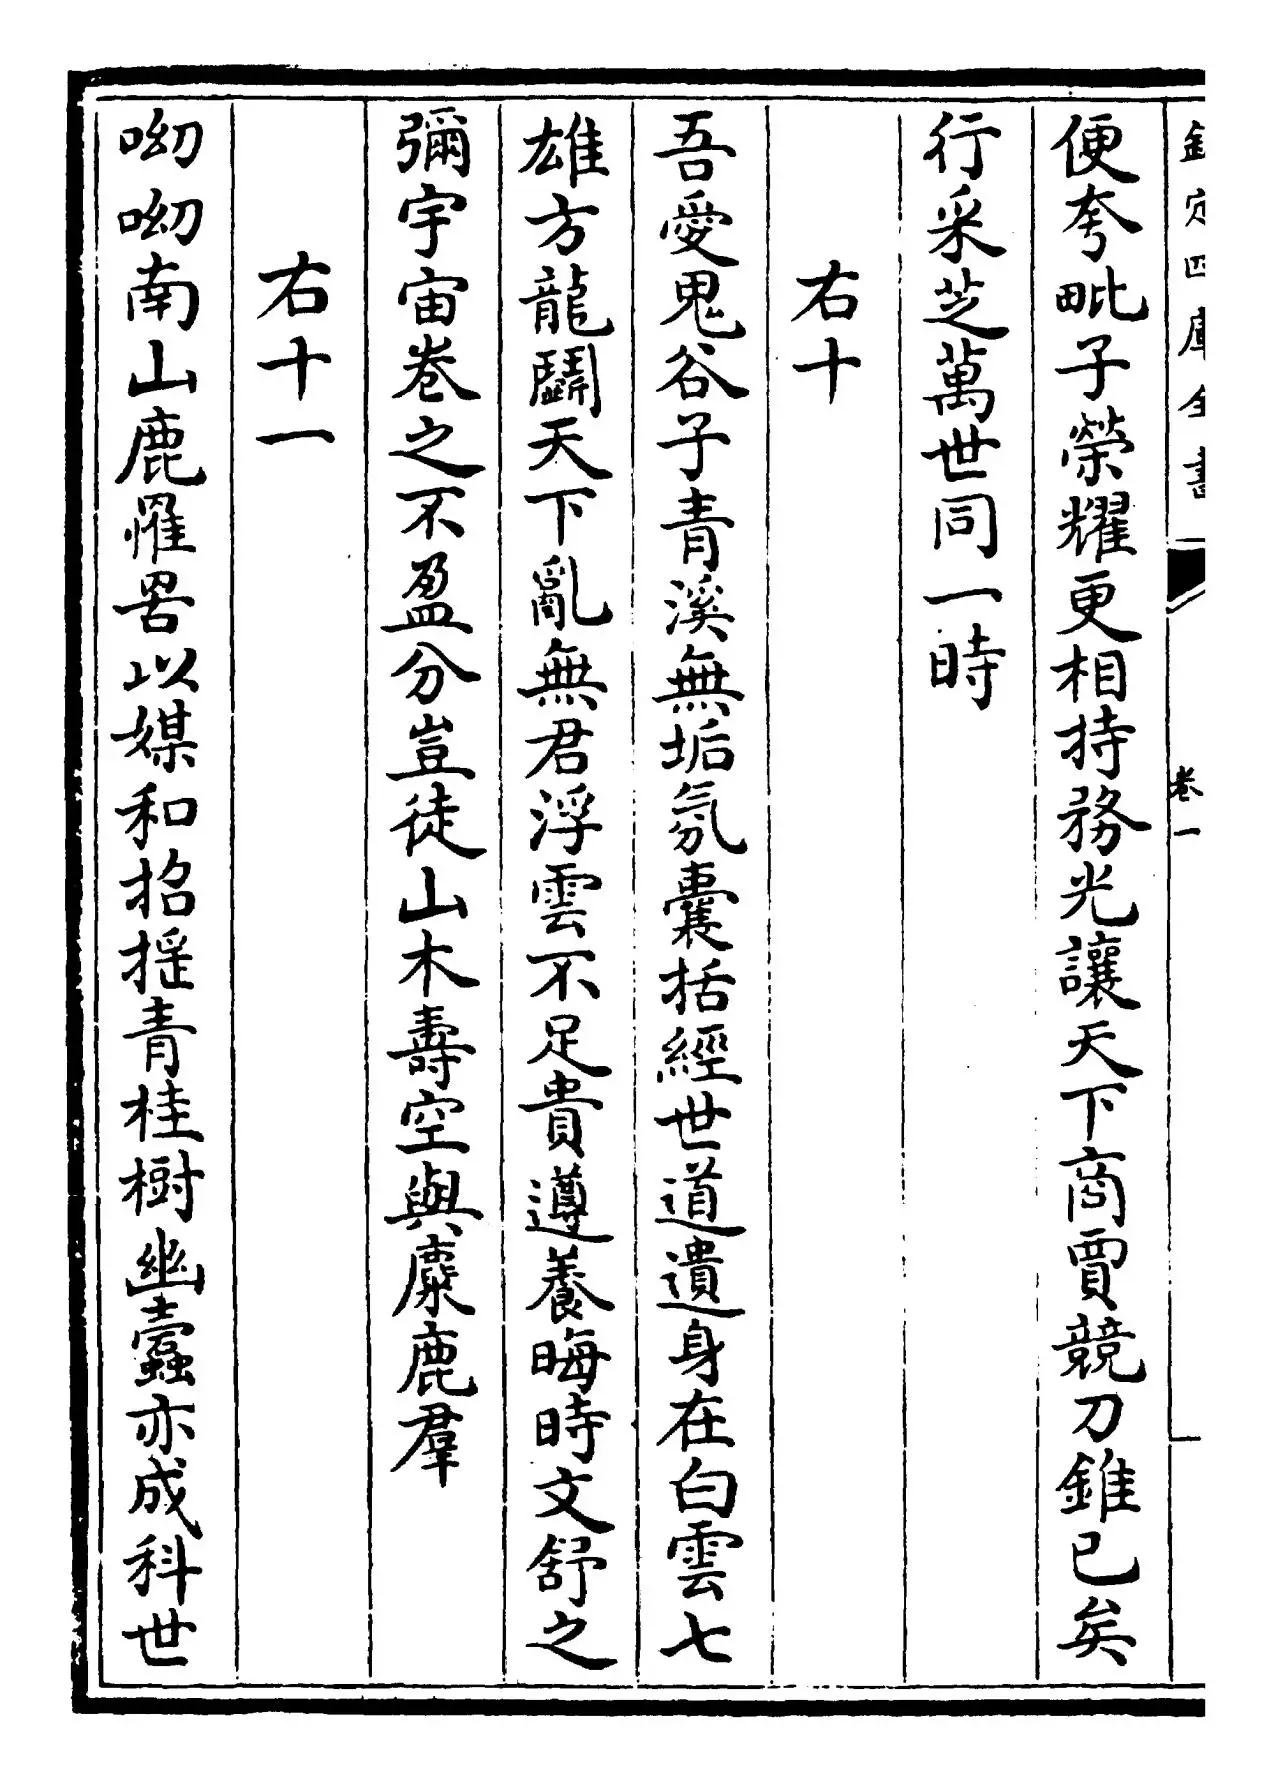 欽定四庫全書
卷一
便夸毗子榮耀更相持務光讓天下商賈競刀錐已矣
行采芝萬世同一時
右十
吾愛鬼谷子青溪無垢氛囊括經世道遺身在白雲七
雄方龍鬬天下亂無君浮雲不足貴遵養晦時文舒之
彌宇宙卷之不盈分豈徒山木壽空與麋鹿羣
右十一
呦呦南山鹿罹罟以媒和招搖青桂樹幽蠧亦成科世